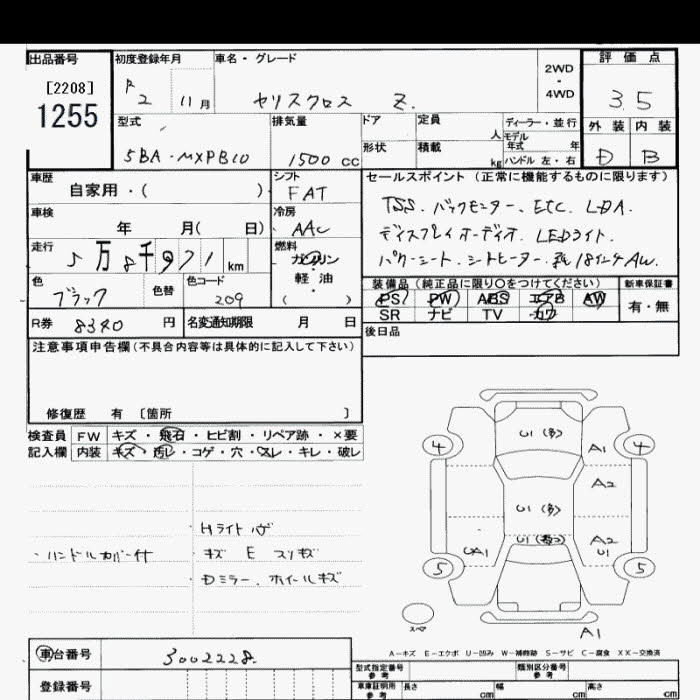 出品番号 初度登録年月 車名・グレード 2WD・4WD 評価点
[2208] 1255
R 2 11月 ヤリスクロス Z. 3.5
型式 排気量 ドア 定員 人 ディーラー・並行 外装 内装
形状 積載 kg モデル年式 年
ハンドル 左・右
5BA・MXPB10 1500 cc D B
車歴 シフト セールスポイント(正常に機能するものに限ります)
自家用・( ) FAT
車検 冷房 TSS. バックモニター. ETC. LDA.
年 月( 日) AAC ディスプレイオーディオ. LEDライト.
走行 燃料 パワーシート. シートヒーター. 純18インチAW.
5万8千971km ガソリン
軽・油
( )
色 色替 色コード 装備品(純正品に限り○をつけてください) 新車保証書
ブラック 209 PS PW ABS エアB AW 有・無
SR ナビ TV カワ
R券 8340 円 名変通知期限 月 日 後日品
注意事項申告欄(不具合内容等は具体的に記入して下さい)
修復歴 有 〔箇所 〕
検査員 FW キズ・飛石・ヒビ割・リペア跡・×要
記入欄 内装 キズ・汚レ・コゲ・穴・スレ・キレ・破レ
Hライトハゲ
・ハンドルカバー付 キズ E スリキズ
Dミラー. ホイールキズ
U1(多)
4 A1 4
A2
U1(多)
U1
UA1 A2
U1
5 5
スペア A1
A-キズ E-エクボ U-凹み W-補修跡 S-サビ C-腐食 XX-交換済
車台番号 3002228.
型式指定番号 参考 類別区分番号 参考
登録番号 車庫証明用 参考 長さ cm 幅 cm 高さ cm